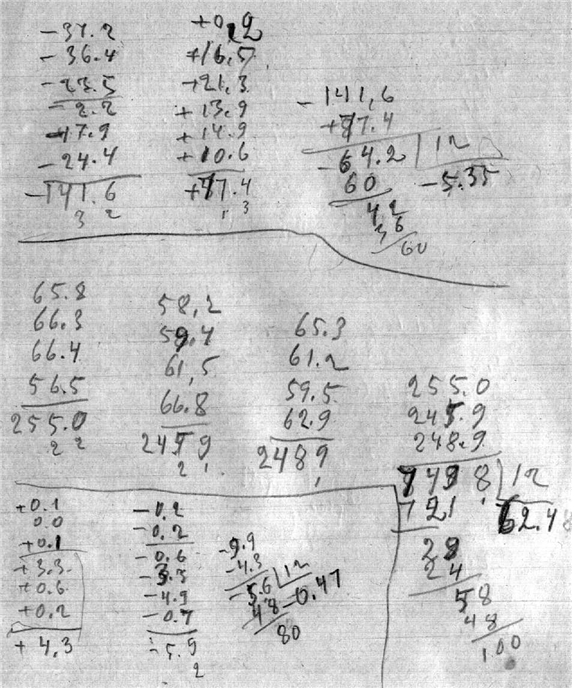 -37.2
-36.4
-23.5
-2.2
-17.9
-24.4
-141.6
3 2
+0.2
+16.5
+21.3
+13.9
+14.9
+10.6
+77.4
1 3
-141,6
+77.4
-64.2 12
60 -5.35
42
36
60
65.8
66.3
66.4
56.5
255.0
2 2
58,2
59.4
61,5
66.8
245 9
2 1
65.3
61.2
59.5
62.9
248 9
1
255.0
245.9
248.9
749 8 12
72 62.48
29
24
58
48
100
+0.1
0.0
+0.1
+3.3
+0.6
+0.2
+4.3
-0.2
-0.2
-0.6
-3.3
-4.9
-0.7
-9.9
2
-9.9
-4.3
-5.6 12
48 -0.47
80